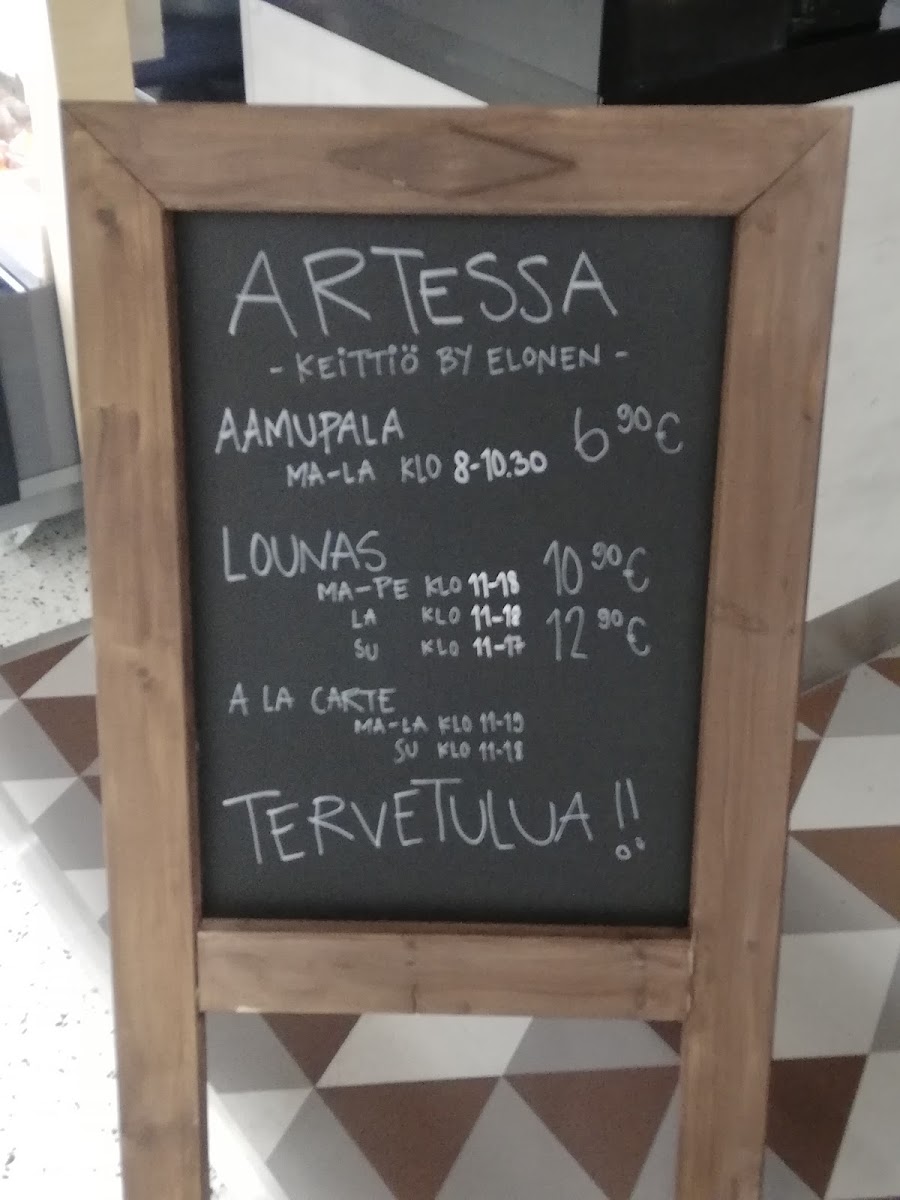 ARTESSA
- KEITTIÖ BY ELONEN -
AAMUPALA 6 90 €
MA-LA KLO 8-10.30
LOUNAS 10 90 €
MA-PE KLO 11-18
LA KLO 11-18 12 90 €
SU KLO 11-17
A LA CARTE
MA-LA KLO 11-19
SU KLO 11-18
TERVETULUA !!